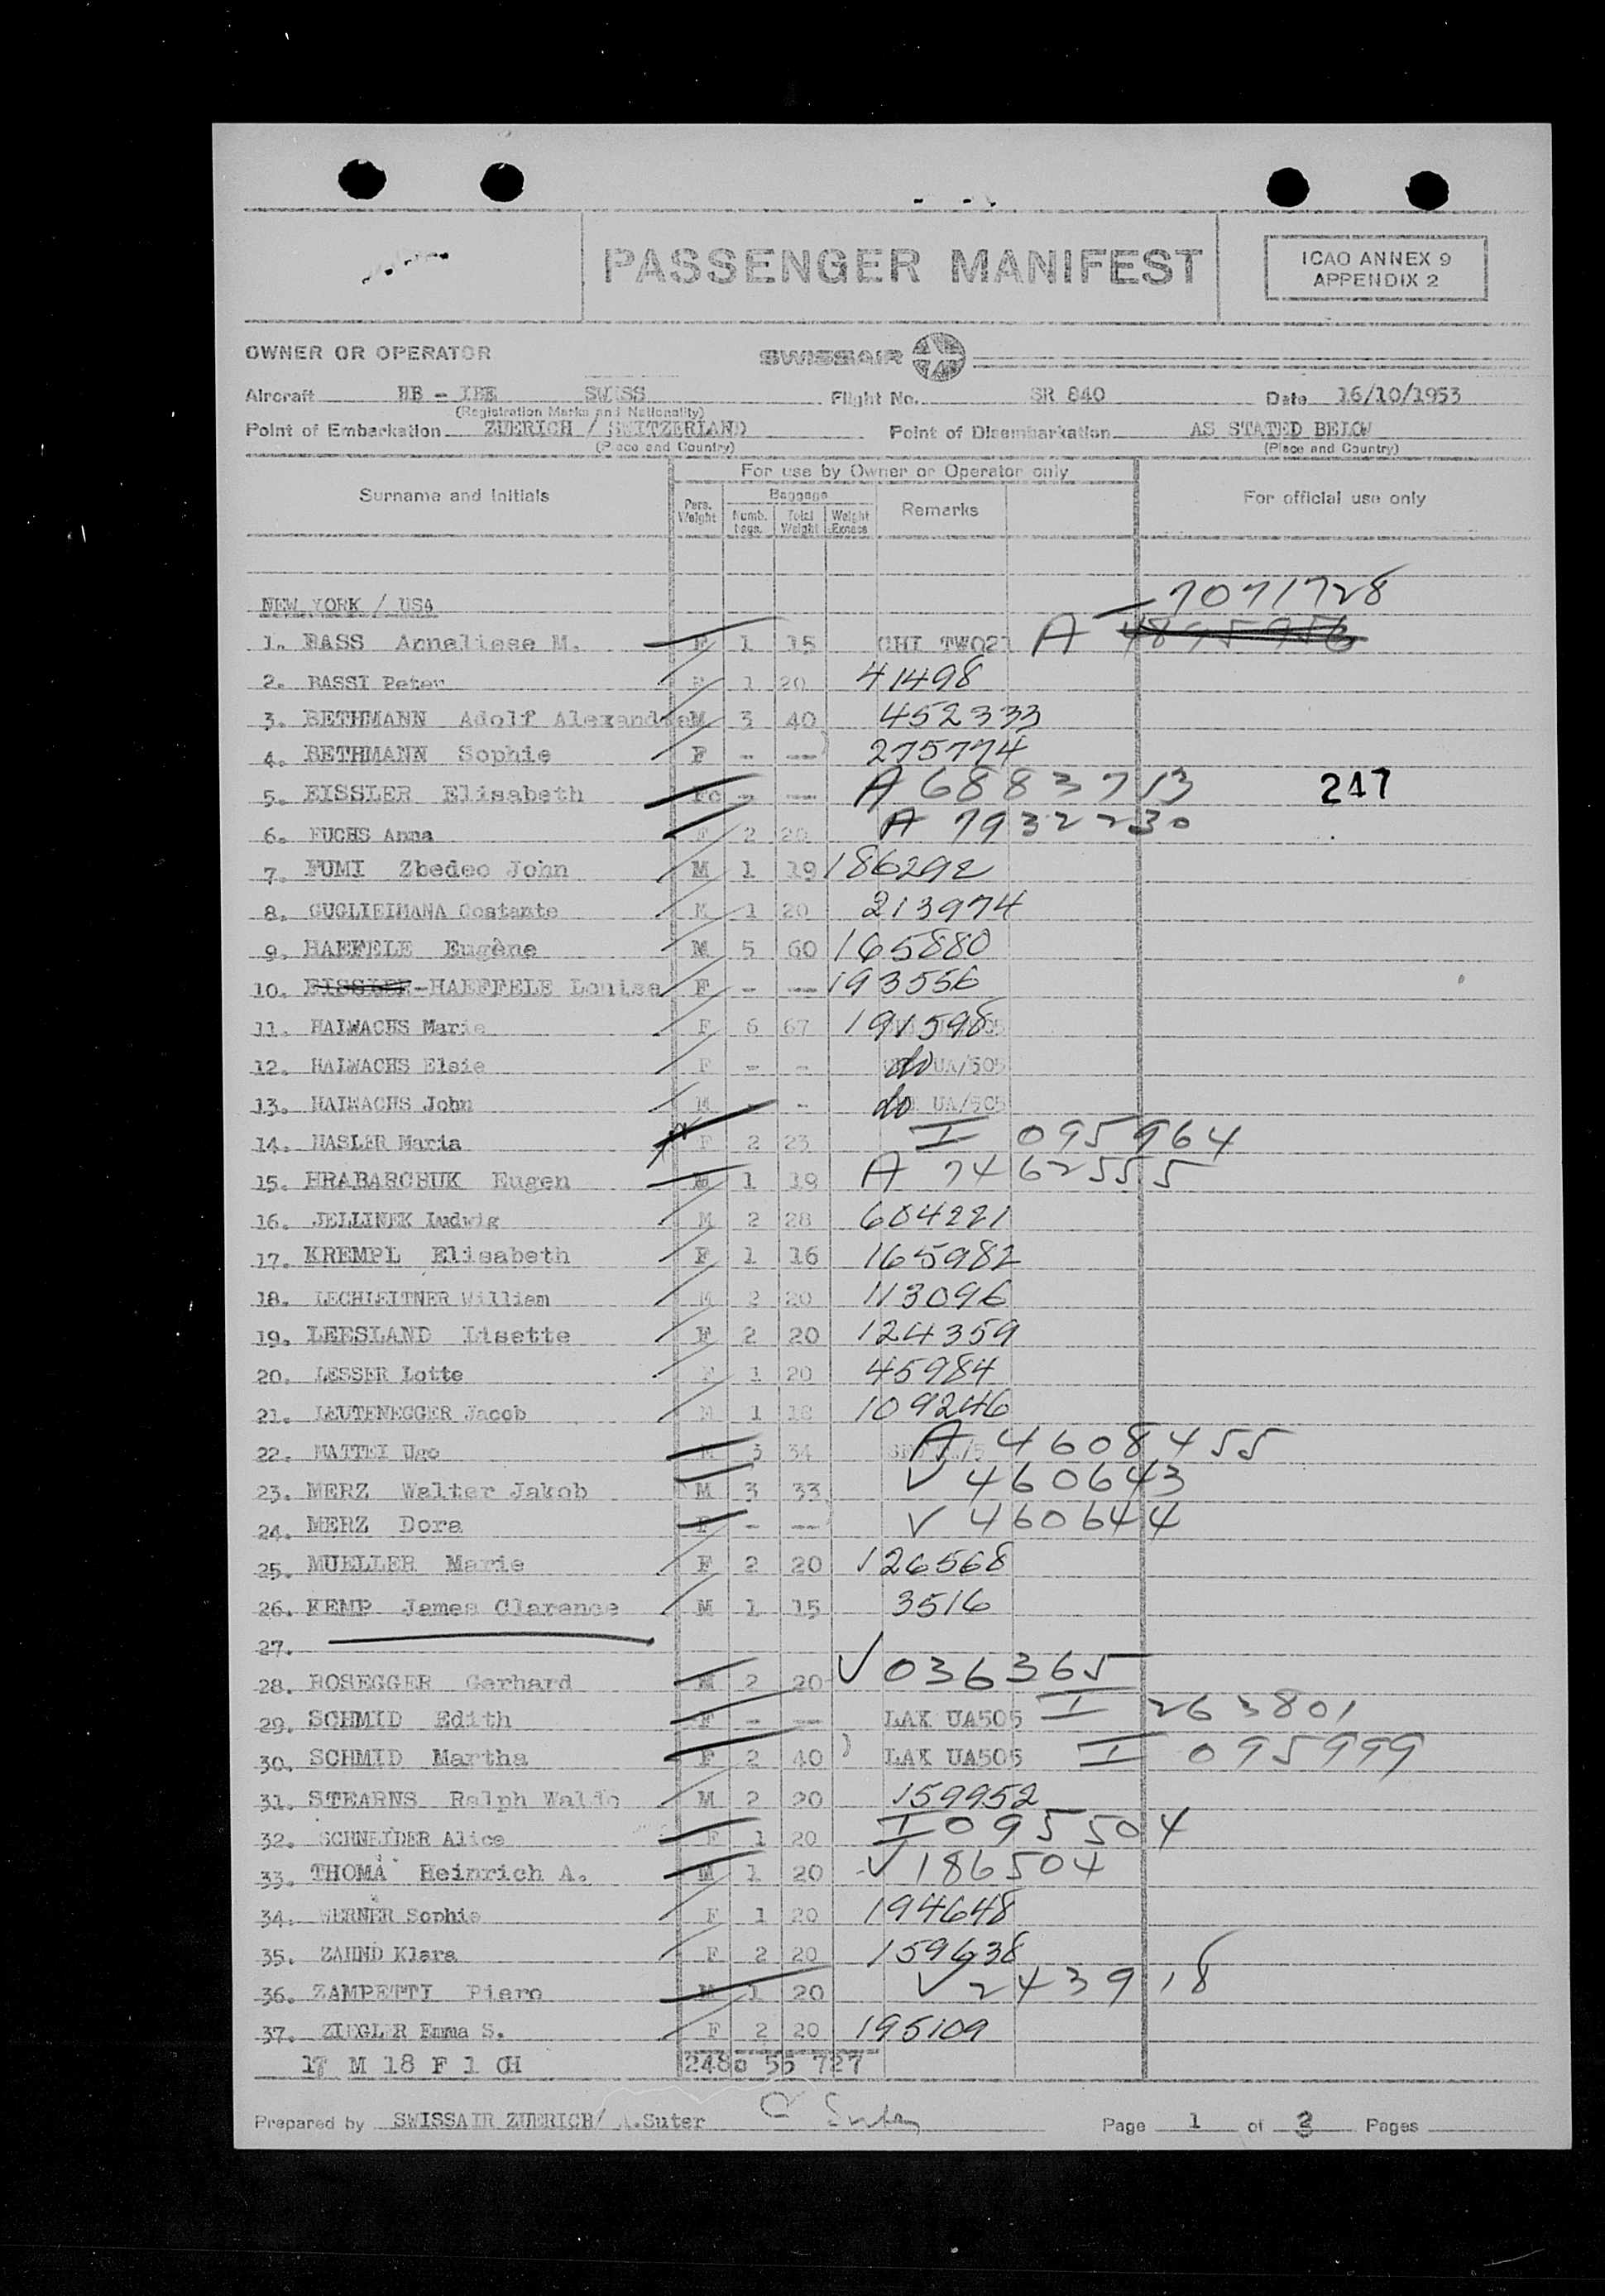 PASSENGER MANIFEST
ICAO ANNEX 9
APPENDIX 2
OWNER OR OPERATOR SWISSAIR
Aircraft HB - IBE SWISS Flight No. SR 840 Date 16/10/1953
(Registration Marks and Nationality)
Point of Embarkation ZUERICH / SWITZERLAND Point of Disembarkation AS STATED BELOW
(Place and Country) (Place and Country)
For use by Owner or Operator only
Surname and Initials Pers. Weight Baggage Numb. bags. Total Weight Weight Excess Remarks For official use only
7071728
NEW YORK / USA
1. BASS Anneliese M. F 1 15 CHI TW021 A 4895956
2. BASSI Peter 1 20 41498
3. BETHMANN Adolf Alexandre M 3 40 452333
4. BETHMANN Sophie F - -- ) 275774
5. EISSLER Elisabeth Fc - -- A 6883713 247
6. FUCHS Anna F 2 20 A 7932230
7. FUMI Zbedeo John M 1 19 186292
8. GUGLIEIMANA Costante M 1 20 213974
9. HAEFELE Eugène M 5 60 165880
10. EISSLER-HAEFFELE Louisa F - -- 193556
11. HALWACHS Marie F 6 67 191598
12. HALWACHS Elsie F - - do UA/505
13. HALWACHS John M - - do UA/505
14. HASLER Maria F 2 23 I 095964
15. HRABARCHUK Eugen M 1 19 A 7462555
16. JELLINEK Ludwig M 2 28 604221
17. KREMPL Elisabeth F 1 16 165982
18. LECHLEITNER William M 2 20 113096
19. LEESLAND Lisette F 2 20 124359
20. LESSER Lotte F 1 20 45984
21. LEUTENEGGER Jacob M 1 18 109246
22. MATTEI Ugo M 3 34 A 4608455
23. MERZ Walter Jakob M 3 33 V 460643
24. MERZ Dora F - -- V 460644
25. MUELLER Marie F 2 20 126568
26. KEMP James Clarence M 1 15 3516
27.
28. ROSEGGER Gerhard M 2 20 V 036365
29. SCHMID Edith F - -- LAX UA505 I 263801
30. SCHMID Martha F 2 40 ) LAX UA505 I 095999
31. STEARNS Ralph Waldo M 2 20 159952
32. SCHNEIDER Alice F 1 20 I 095504
33. THOMA Heinrich A. M 1 20 V 186504
34. WERNER Sophie F 1 20 194648
35. ZAHND Klara F 2 20 159638
36. ZAMPETTI Piero M 1 20 V 243918
37. ZIEGLER Emma S. F 2 20 195109
17 M 18 F 1 CH 2480 55 727
Prepared by SWISSAIR ZUERICH/ A.Suter Suter Page 1 of 3 Pages